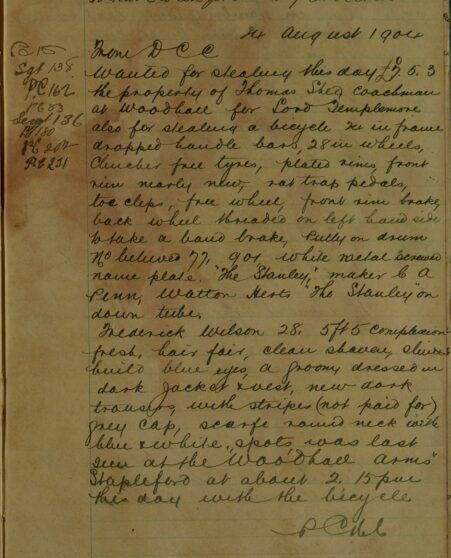 24 August 1904
P.C. 162
From D C C
Sgt 138
P.C. 162
P.C. 83
Sergt 136
PC 207
PC 231
Wanted for stealing this day £7. 5. 3
the property of Thomas Shed, coachman
at Woodhall for Lord Templemore
also for stealing a bicycle 24 in frame
dropped handle bars, 28 in wheels,
Clincher free tyres, plated rims, front
rim nearly new, rat trap pedals,
toe clips, free wheel, front rim brake,
back wheel threaded on left hand side
to take a band brake, pully on drum
No believed 77,901 white metal
name plate. "The Stanley," maker C A
Penn, Watton Herts "The Stanley" on
down tube.
Frederick Wilson 28, 5ft 5 complexion
fresh, hair fair, clean shaven, slender
build blue eyes, a groom, dressed in
dark jacket & vest, new dark
trousers with stripes (not paid for)
grey cap, scarfe round neck with
blue & white spots was last
seen at the "Woodhall Arms"
Stapleford at about 2. 15 pm
this day with the bicycle